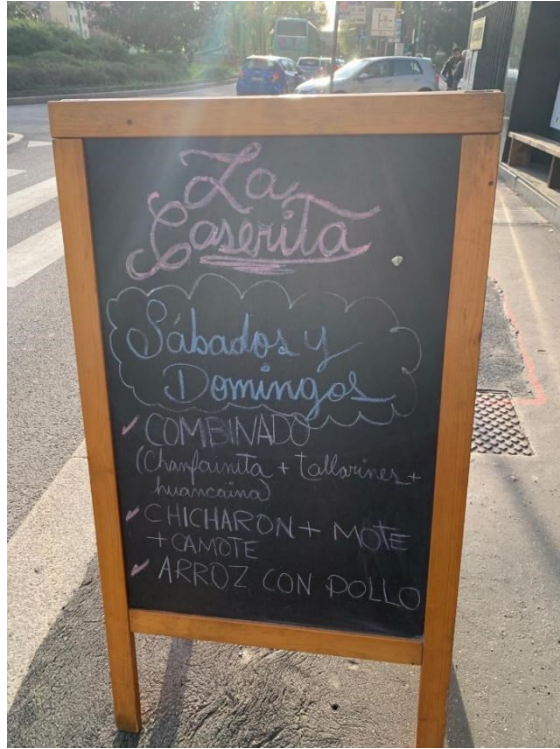 La
Caserita
Sábados y
Domingos
COMBINADO
(Chanfainita + tallarines +
huancaina)
CHICHARON + MOTE
+ CAMOTE
ARROZ CON POLLO